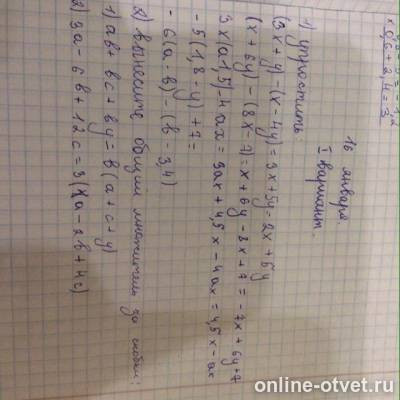 x 0,6 + 2,4 = 3
16 января.
I вариант.
1) упростить:
(3x + y) - (x - 4y) = 3x + 5y = 2x + 6y
(x + 6y) - (8x - 7) = x + 6y - 8x + 7 = -7x + 6y + 7
3x(a 1,5) - 4ax = 3ax + 4,5x - 4ax = 4,5x - ax
- 5(1,8 - y) + 7 =
- 6(a - в) - (в - 3,4)
2) вынесите общий множитель за скобки:
1) aв + вc + вy = в(a + c + y)
2) 3a - 6в + 12c = 3(a - 2в + 4c)
online-otvet.ru